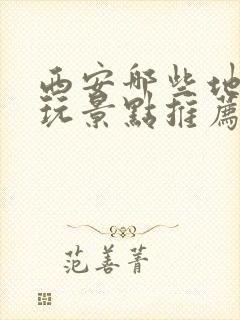 西安哪些地
玩景點推薦
范善菁